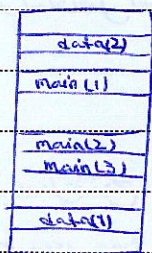 data(2)
main(1)
main(2)
main(3)
data(1)